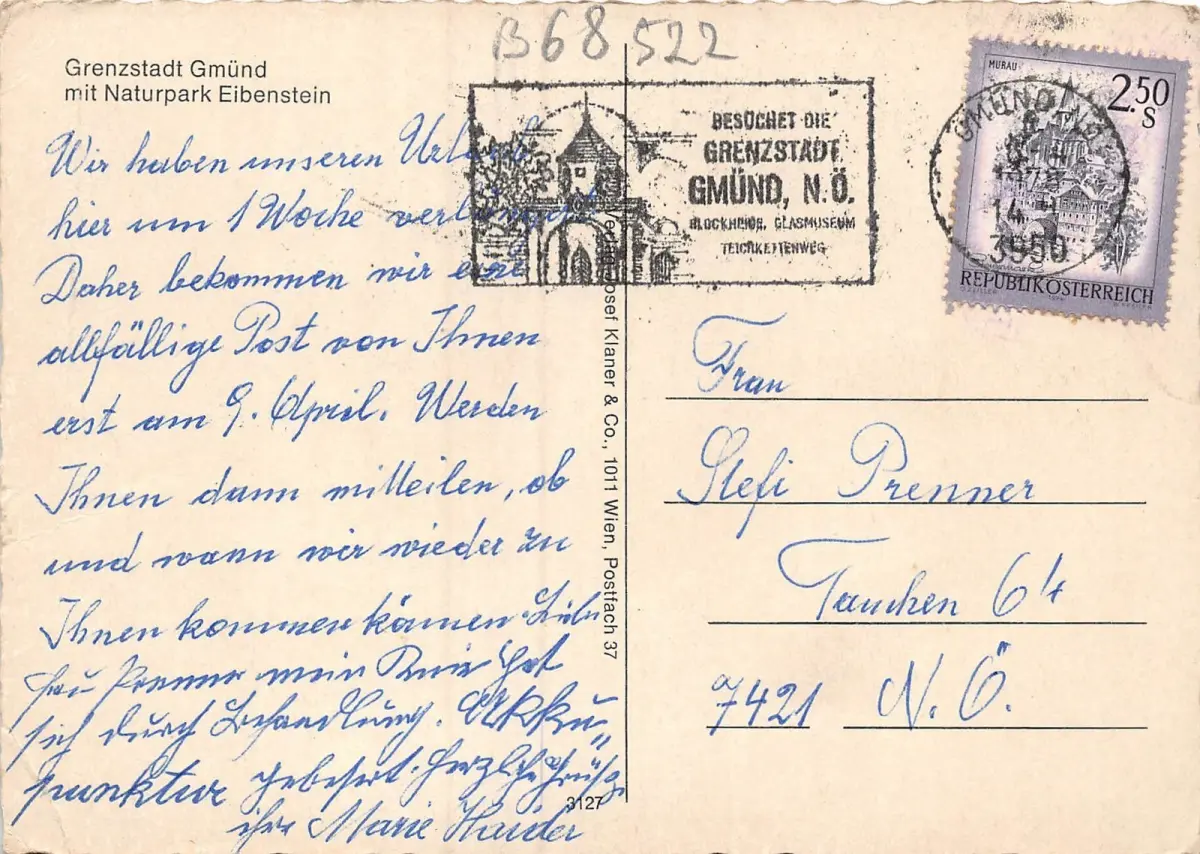 B68522
Grenzstadt Gmünd
mit Naturpark Eibenstein
Wir haben unseren Urlaub
hier um 1 Woche verlängert
Daher bekommen wir eine
allfällige Post von Ihnen
erst am 9. April. Werden
Ihnen dann mitteilen, ob
und wann wir wieder zu
Ihnen kommen kömen. Liebe
Frau Prenner mein Knie hat
sich durch Behandlung. Akku„
punktur gebesert. Herzliche Grüße
ihre Marie Haider
Verlag Josef Klaner & Co., 1011 Wien, Postfach 37
3127
BESUCHET DIE
GRENZSTADT
GMÜND, N.Ö.
BLOCKHEIDE, GLASMUSEUM
TEICHKETTENWEG
MURAU
2.50
S
REPUBLIK ÖSTERREICH
GMÜND, NÖ
14
3950
Frau
Stefi Prenner
Tauchen 64
7421 N.Ö.